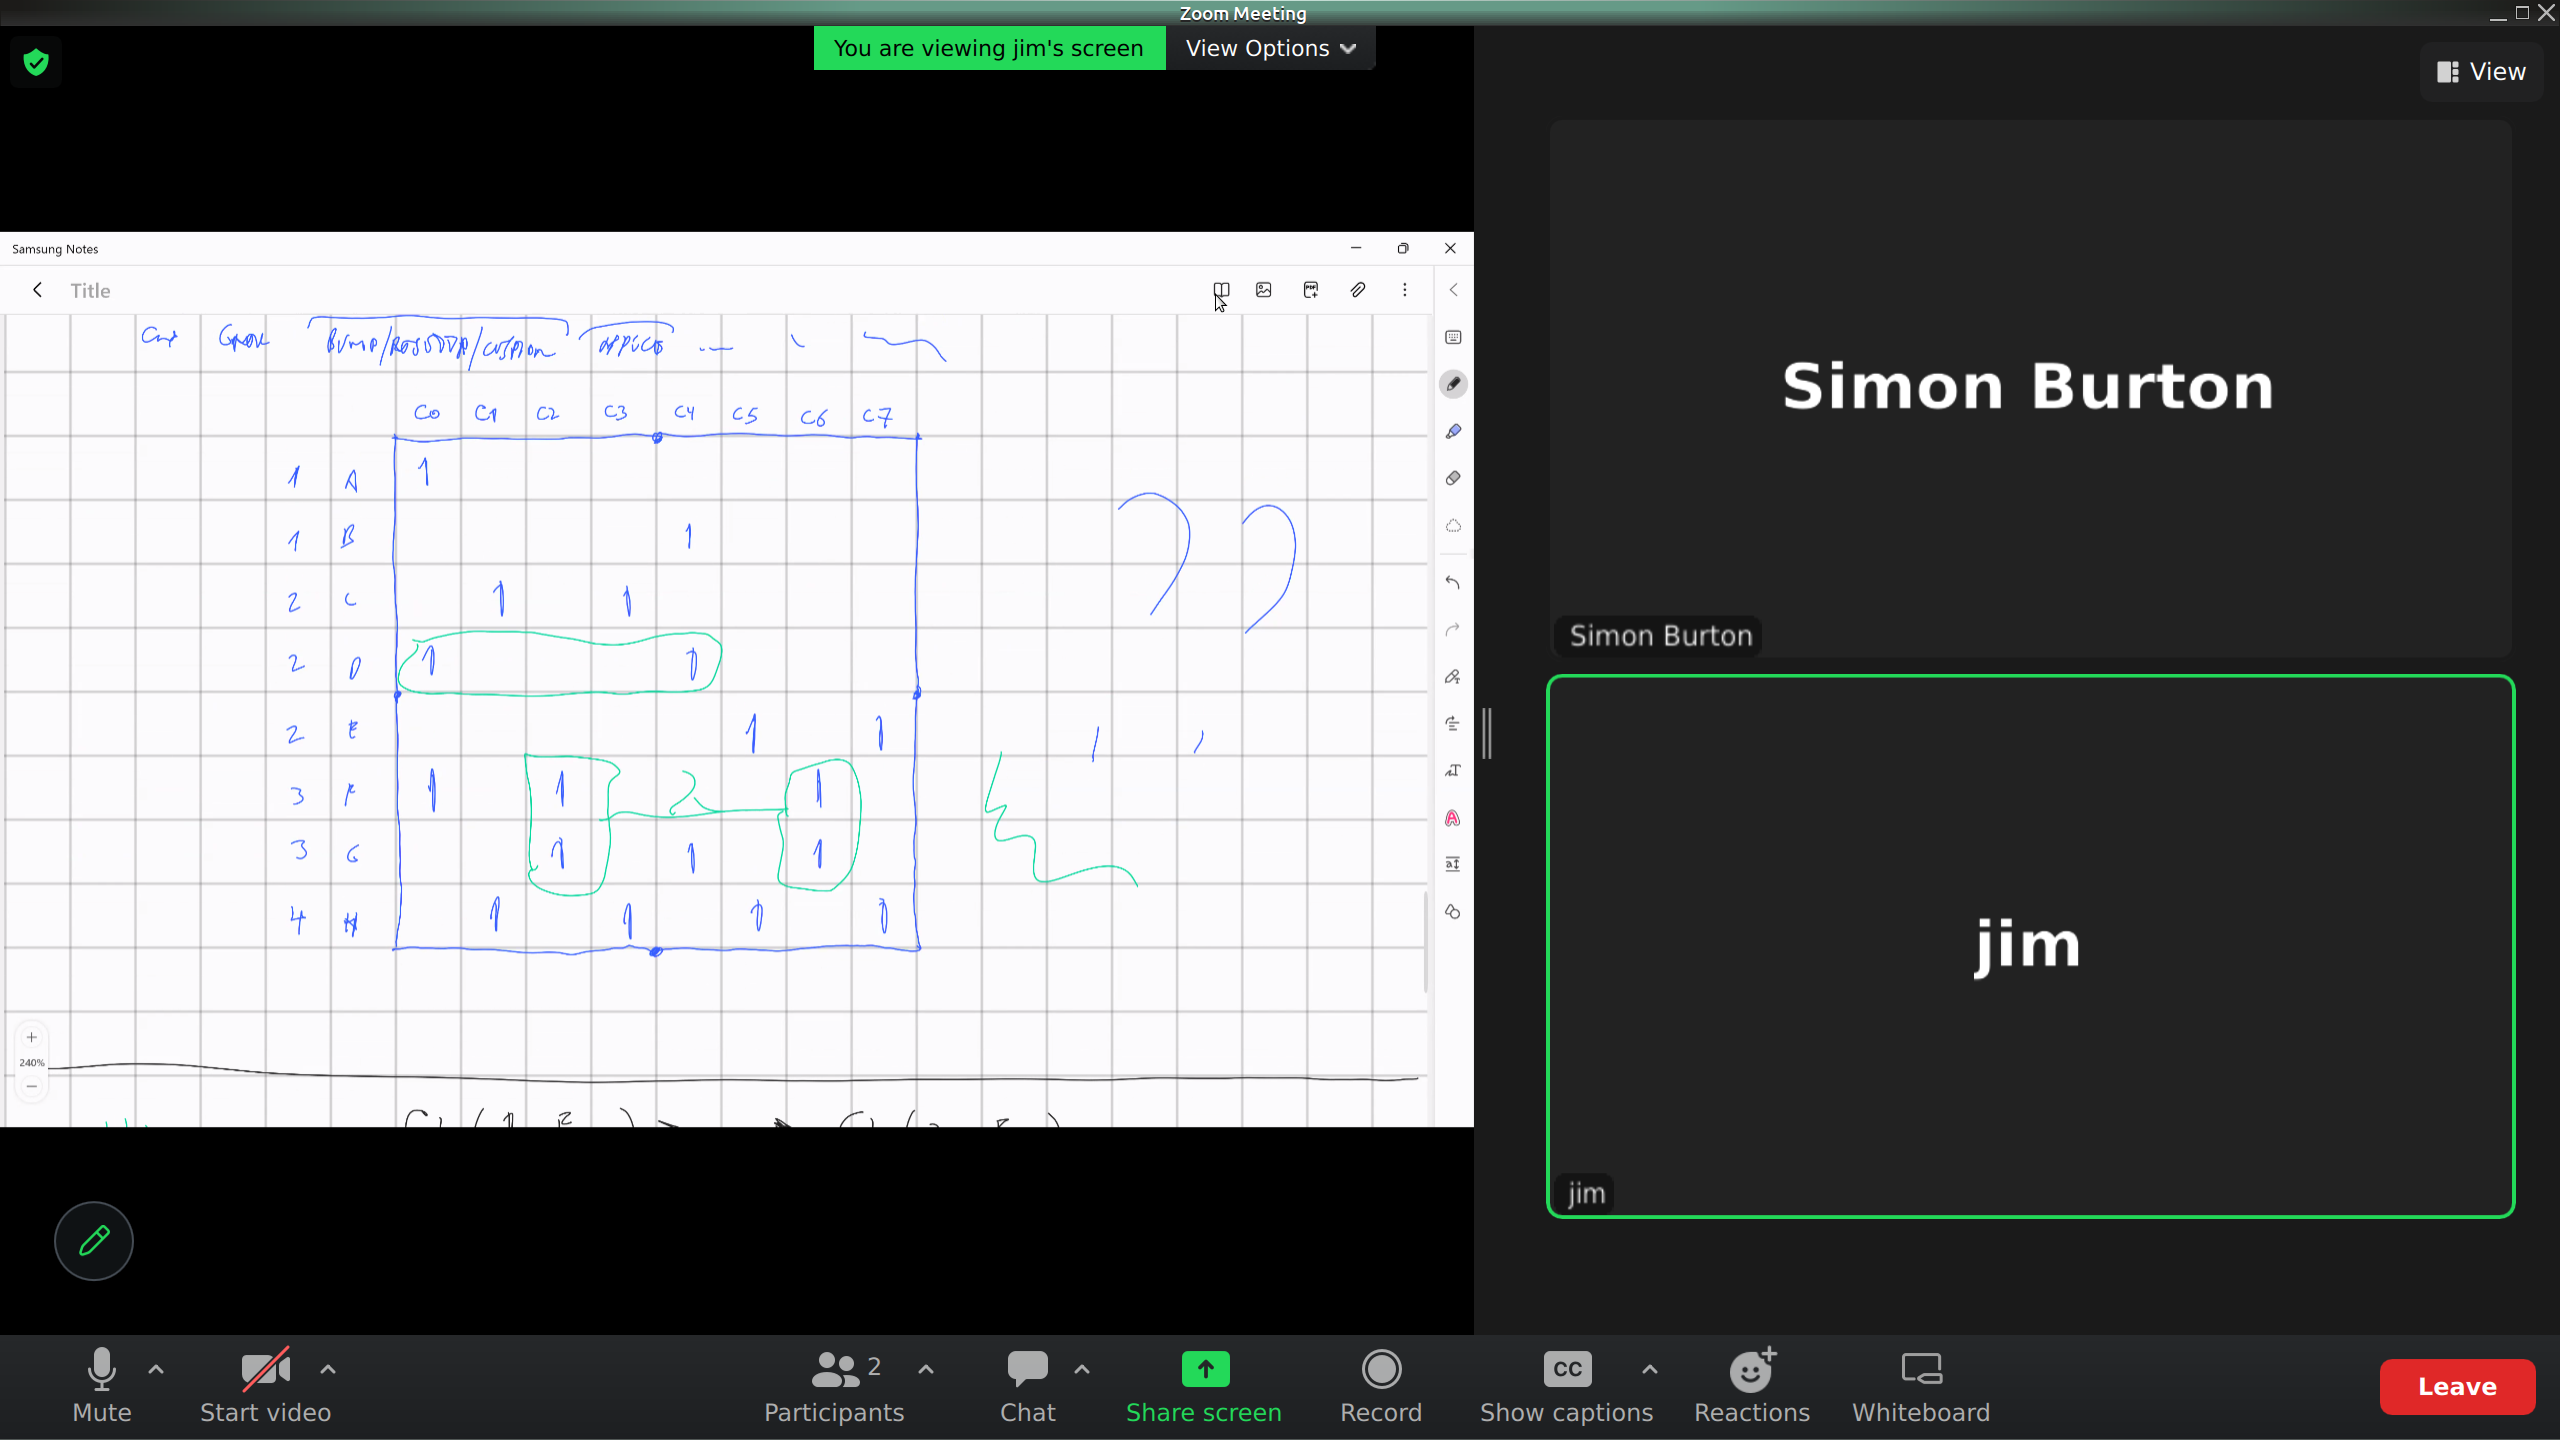 Zoom Meeting
You are viewing jim's screen View Options
View
Samsung Notes
Title
C0 C1 C2 C3 C4 C5 C6 C7
1 A 1
1 B 1
2 C 1 1
2 D 1 1
2 E 1 1
3 F 1 1 2 1
3 G 1 1 1
4 H 1 1 1 1
240%
Simon Burton
Simon Burton
jim
jim
2
CC
Mute Start video Participants Chat Share screen Record Show captions Reactions Whiteboard Leave